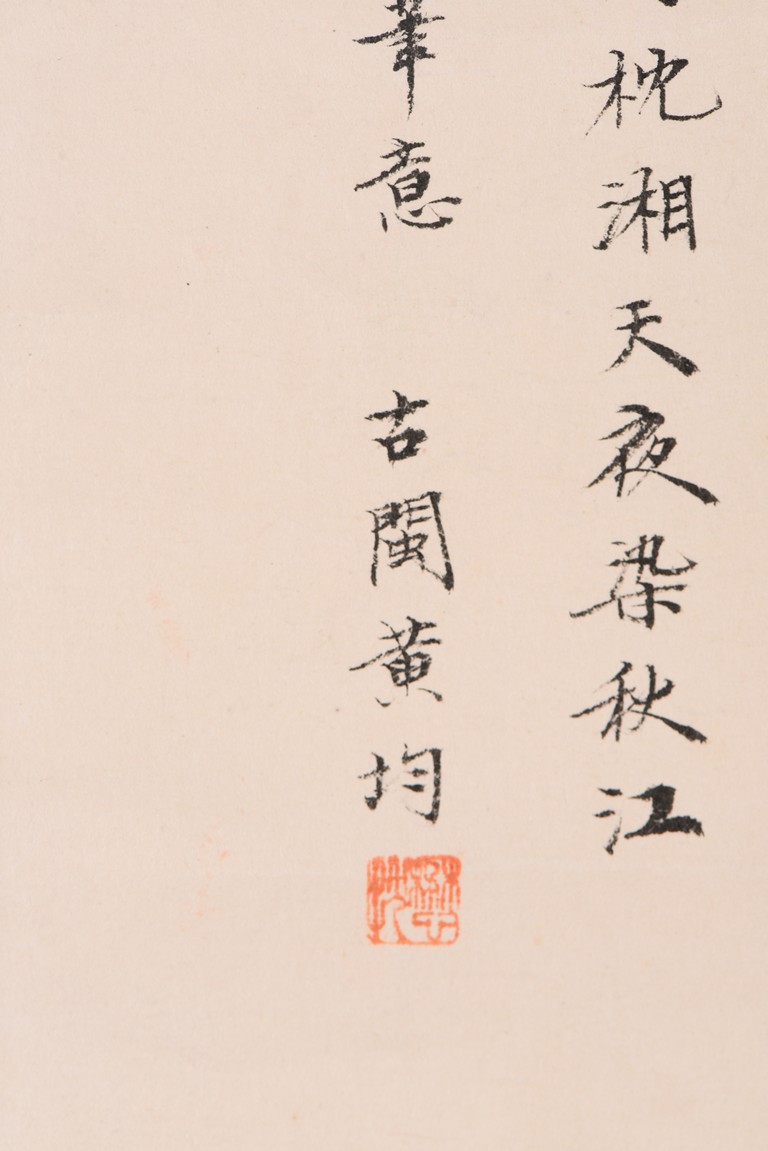 枕湘天夜染秋江
筆意 古閩黄均